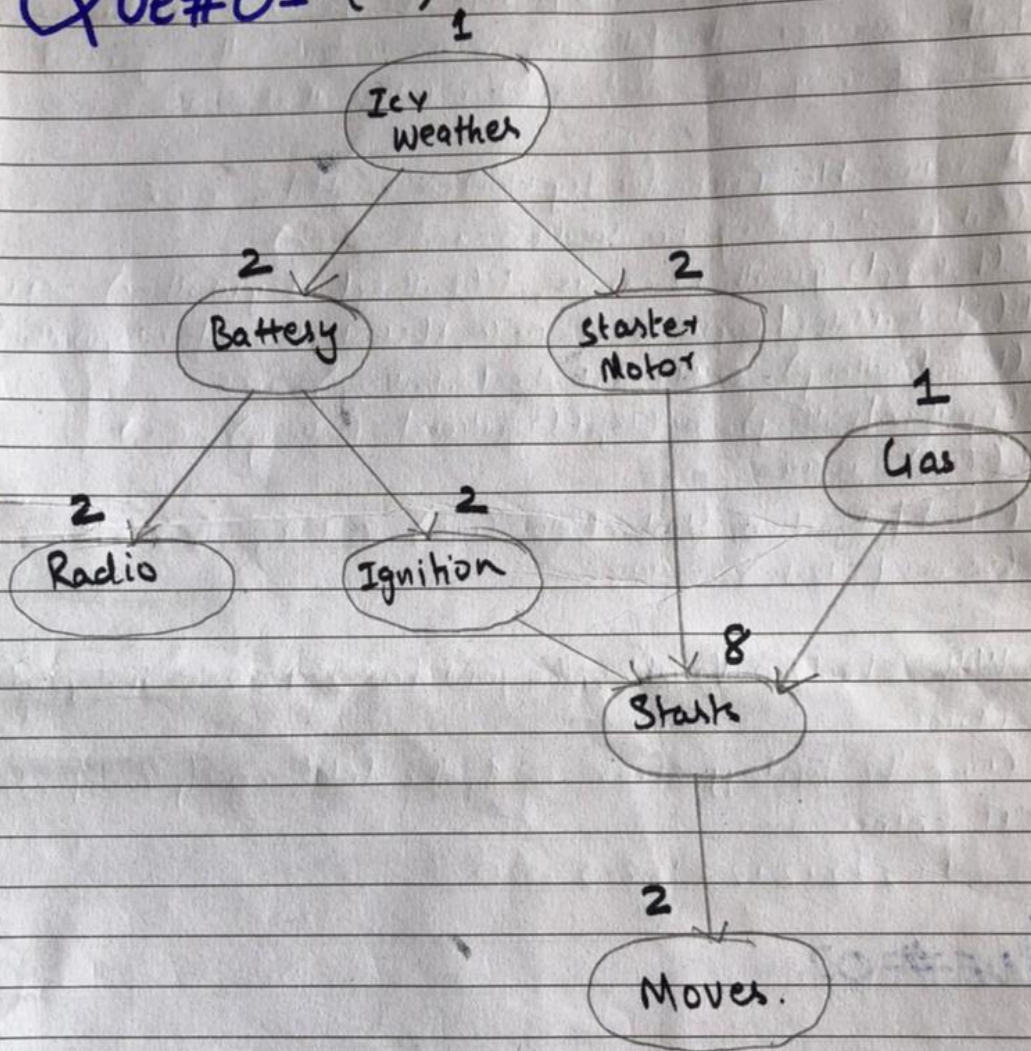 Que#0
1
Icy
Weather
2
Battery
2
Starter
Motor
1
Gas
2
Radio
2
Ignition
8
Starts
2
Moves.